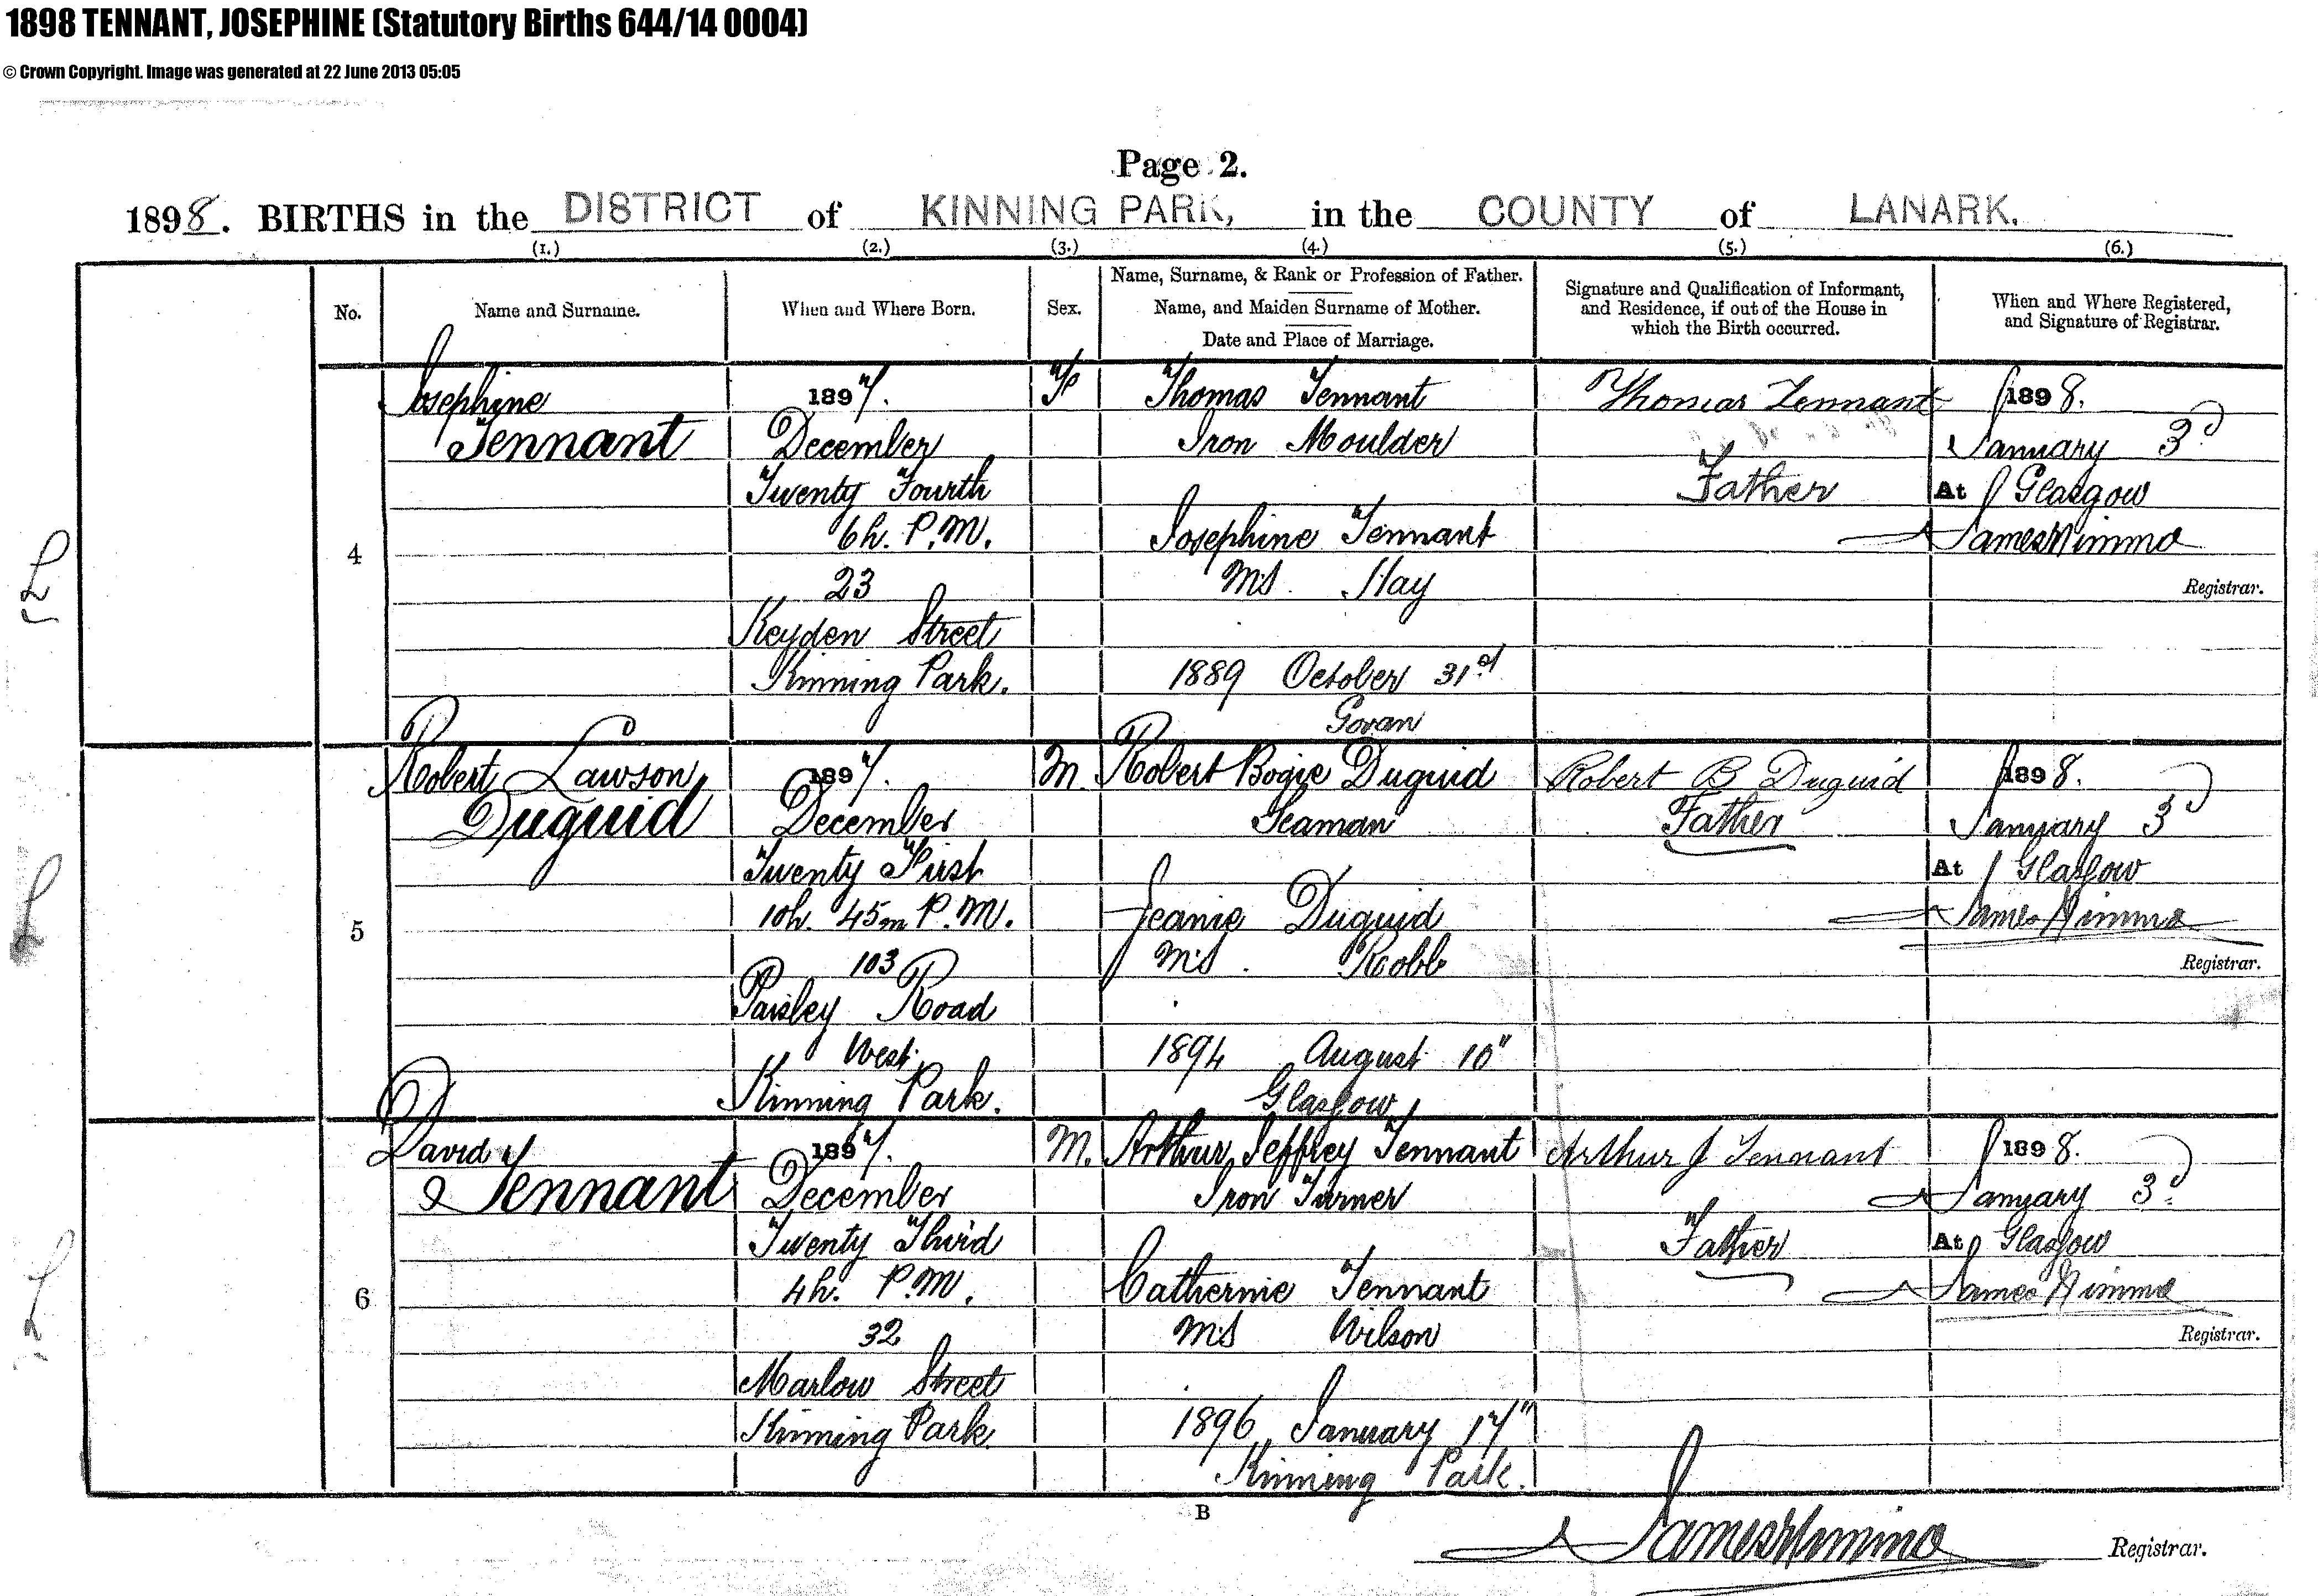 1898 TENNANT, JOSEPHINE (Statutory Births 644/14 0004)
© Crown Copyright. Image was generated at 22 June 2013 05:05
Page 2.
1898. BIRTHS in the DISTRICT of KINNING PARK, in the COUNTY of LANARK.
(1.) (2.) (3.) (4.) (5.) (6.)
No.
Name and Surname.
When and Where Born.
Sex.
Name, Surname, & Rank or Profession of Father.
Name, and Maiden Surname of Mother.
Date and Place of Marriage.
Signature and Qualification of Informant,
and Residence, if out of the House in
which the Birth occurred.
When and Where Registered,
and Signature of Registrar.
4
Josephine
Tennant
1897.
December
Twenty Fourth
6h. P.M.
23
Keyden Street
Kinning Park.
F
Thomas Tennant
Iron Moulder
Josephine Tennant
M.S. Hay
1889 October 31st
Govan
Thomas Tennant
Father
1898.
January 3d
At Glasgow
James Nimmo
Registrar.
5
Robert Lawson
Duguid
1897.
December
Twenty First
10h. 45m P.M.
103
Paisley Road
West
Kinning Park.
M.
Robert Bogie Duguid
Seaman
Jeanie Duguid
M.S. Robb
1894 August 10"
Glasgow
Robert B Duguid
Father
1898.
January 3d
At Glasgow
James Nimmo
Registrar.
6
David
Tennant
1897.
December
Twenty Third
4h. P.M.
32
Marlow Street
Kinning Park
M.
Arthur Jeffrey Tennant
Iron Turner
Catherine Tennant
M.S Wilson
1896 January 17"
Kinning Park.
Arthur J Tennant
Father
1898.
January 3d.
At Glasgow
James Nimmo
Registrar.
B
James Nimmo Registrar.